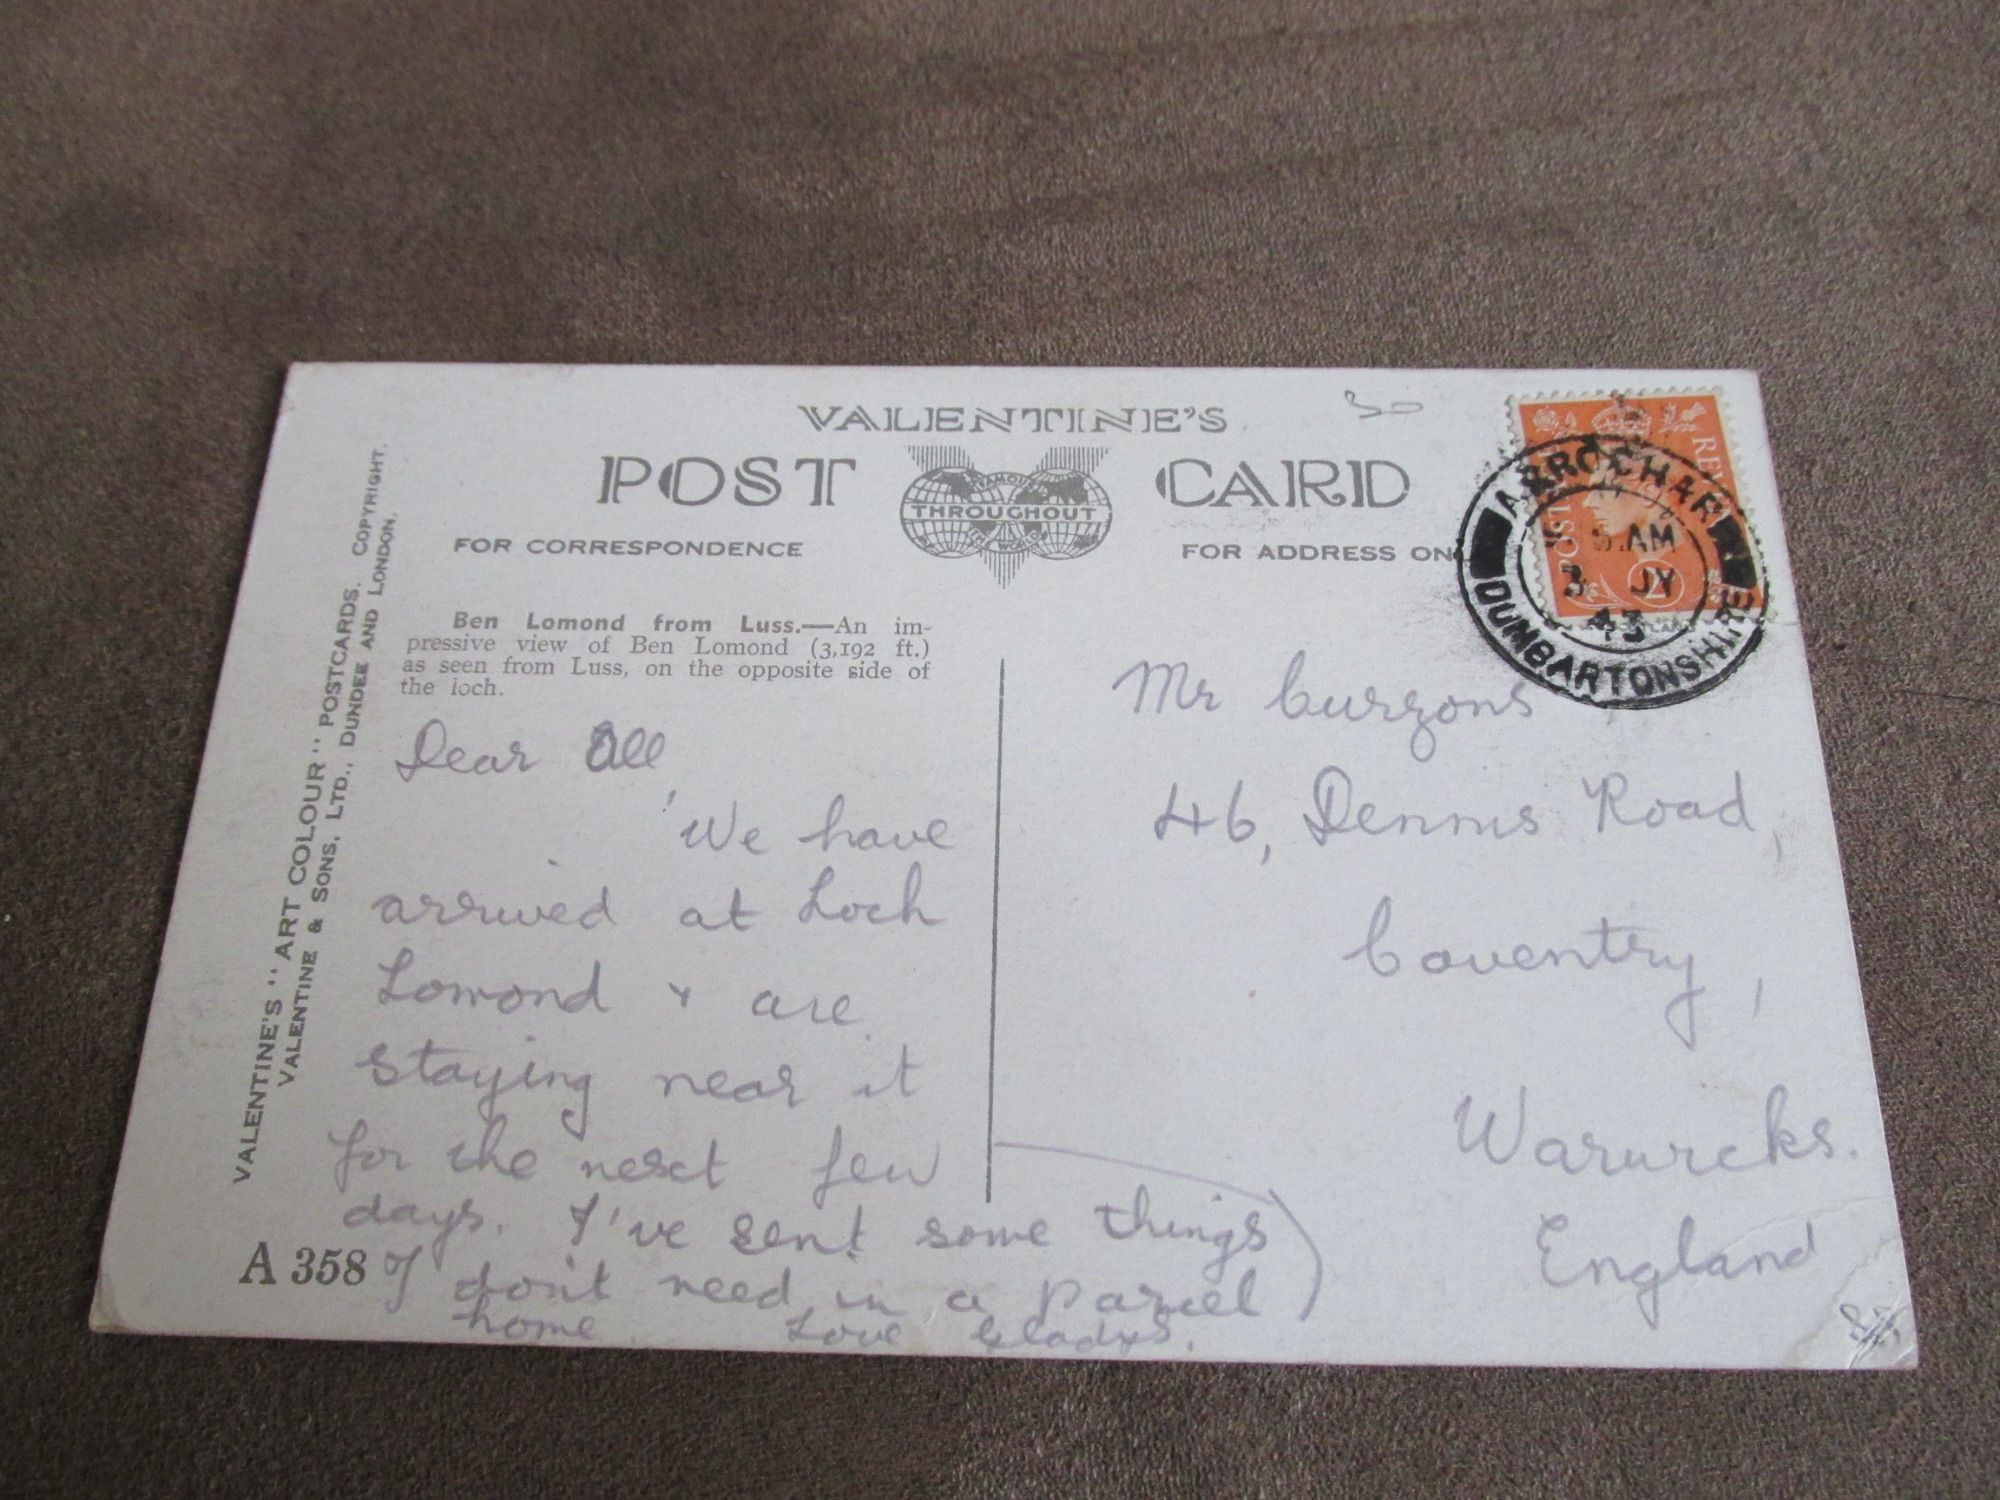 VALENTINE'S
POST CARD
FAMOUS
THROUGHOUT
THE WORLD
FOR CORRESPONDENCE
FOR ADDRESS ON
30
REV
POST
2
ARROCHAR
AM
3 JY
43
DUMBARTONSHIRE
VALENTINE'S "ART COLOUR" POSTCARDS. COPYRIGHT.
VALENTINE & SONS, LTD., DUNDEE AND LONDON.
Ben Lomond from Luss.—An im-
pressive view of Ben Lomond (3,192 ft.)
as seen from Luss, on the opposite side of
the loch.
Dear All
We have
arrived at Loch
Lomond & are
staying near it
for the next few
days. I've sent some things
I don't need in a parcel
home. Love Gladys.
A 358
Mr Curzons
46, Dennis Road,
Coventry,
Warwicks.
England